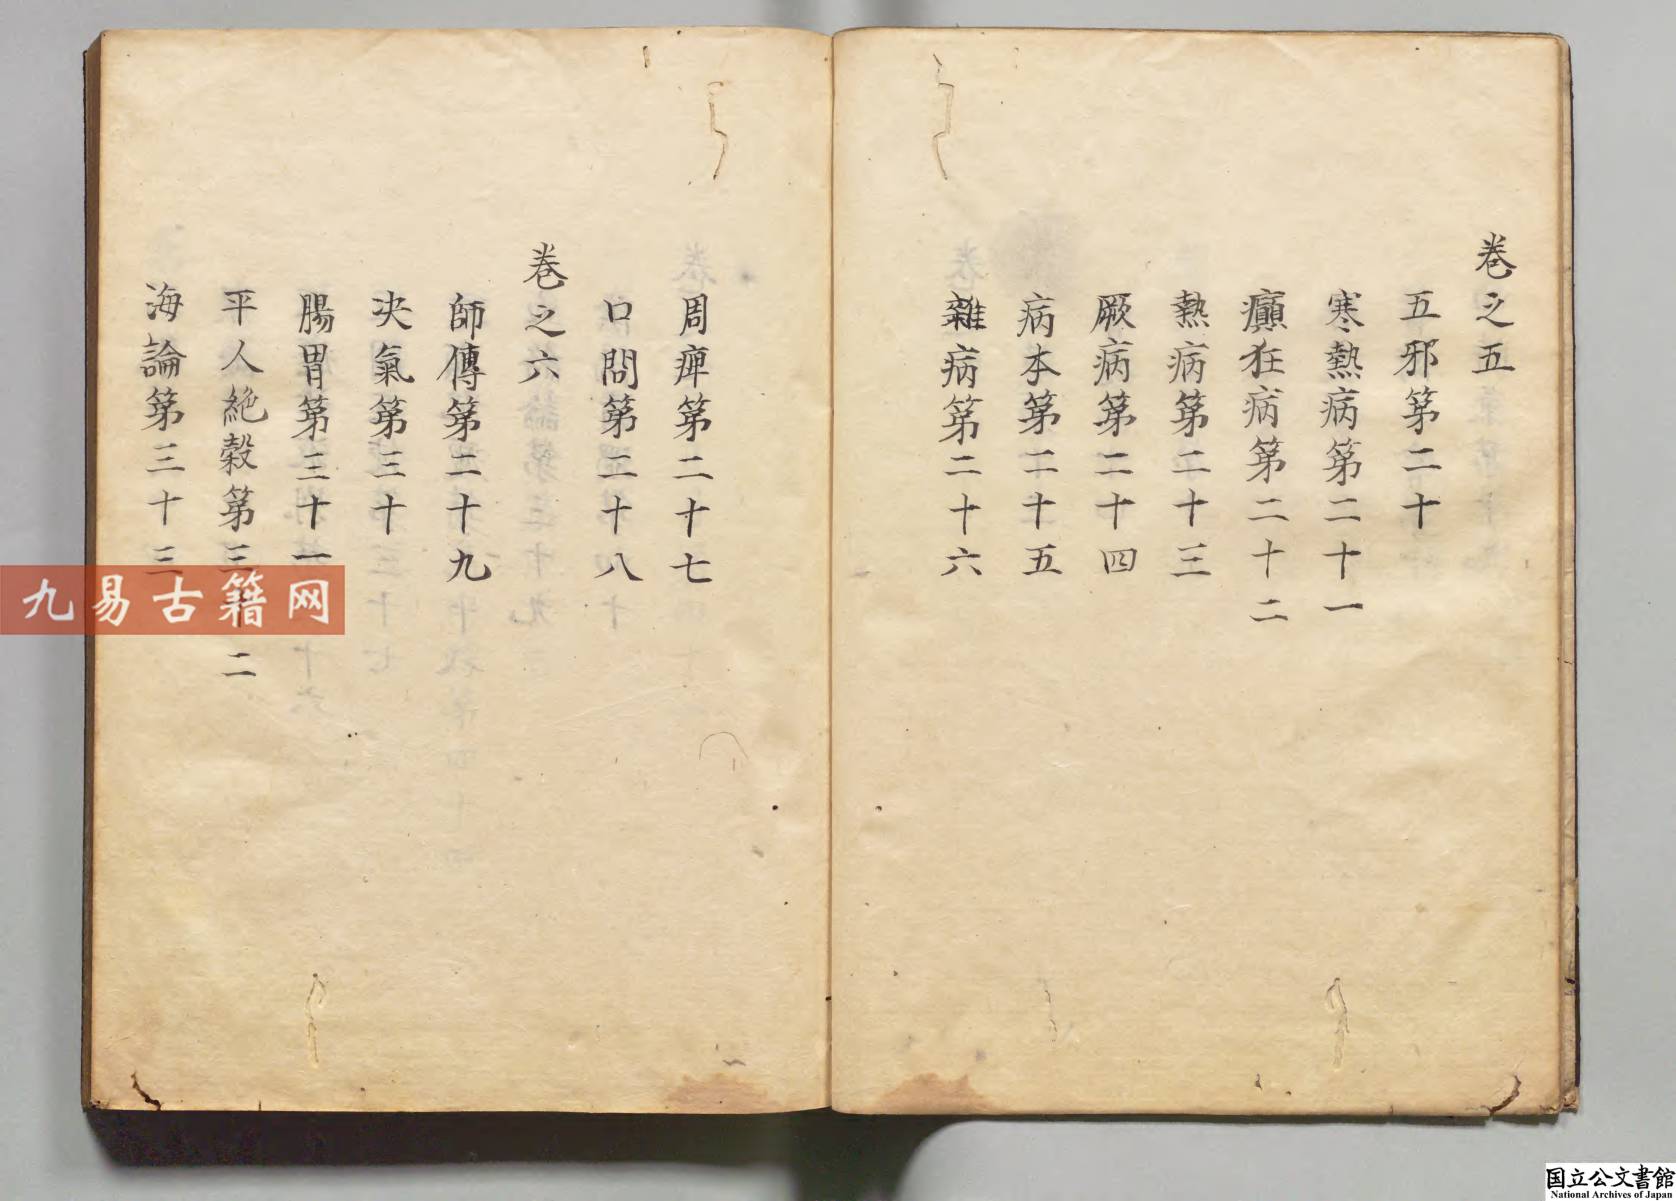 卷之五
五邪第二十
寒熱病第二十一
癲狂病第二十二
熱病第二十三
厥病第二十四
病本第二十五
雜病第二十六
周痺第二十七
口問第二十八
卷之六
師傳第二十九
决氣第三十
腸胃第三十一
平人絶榖第三十二
海論第三十三
九易古籍网
国立公文書館
National Archives of Japan